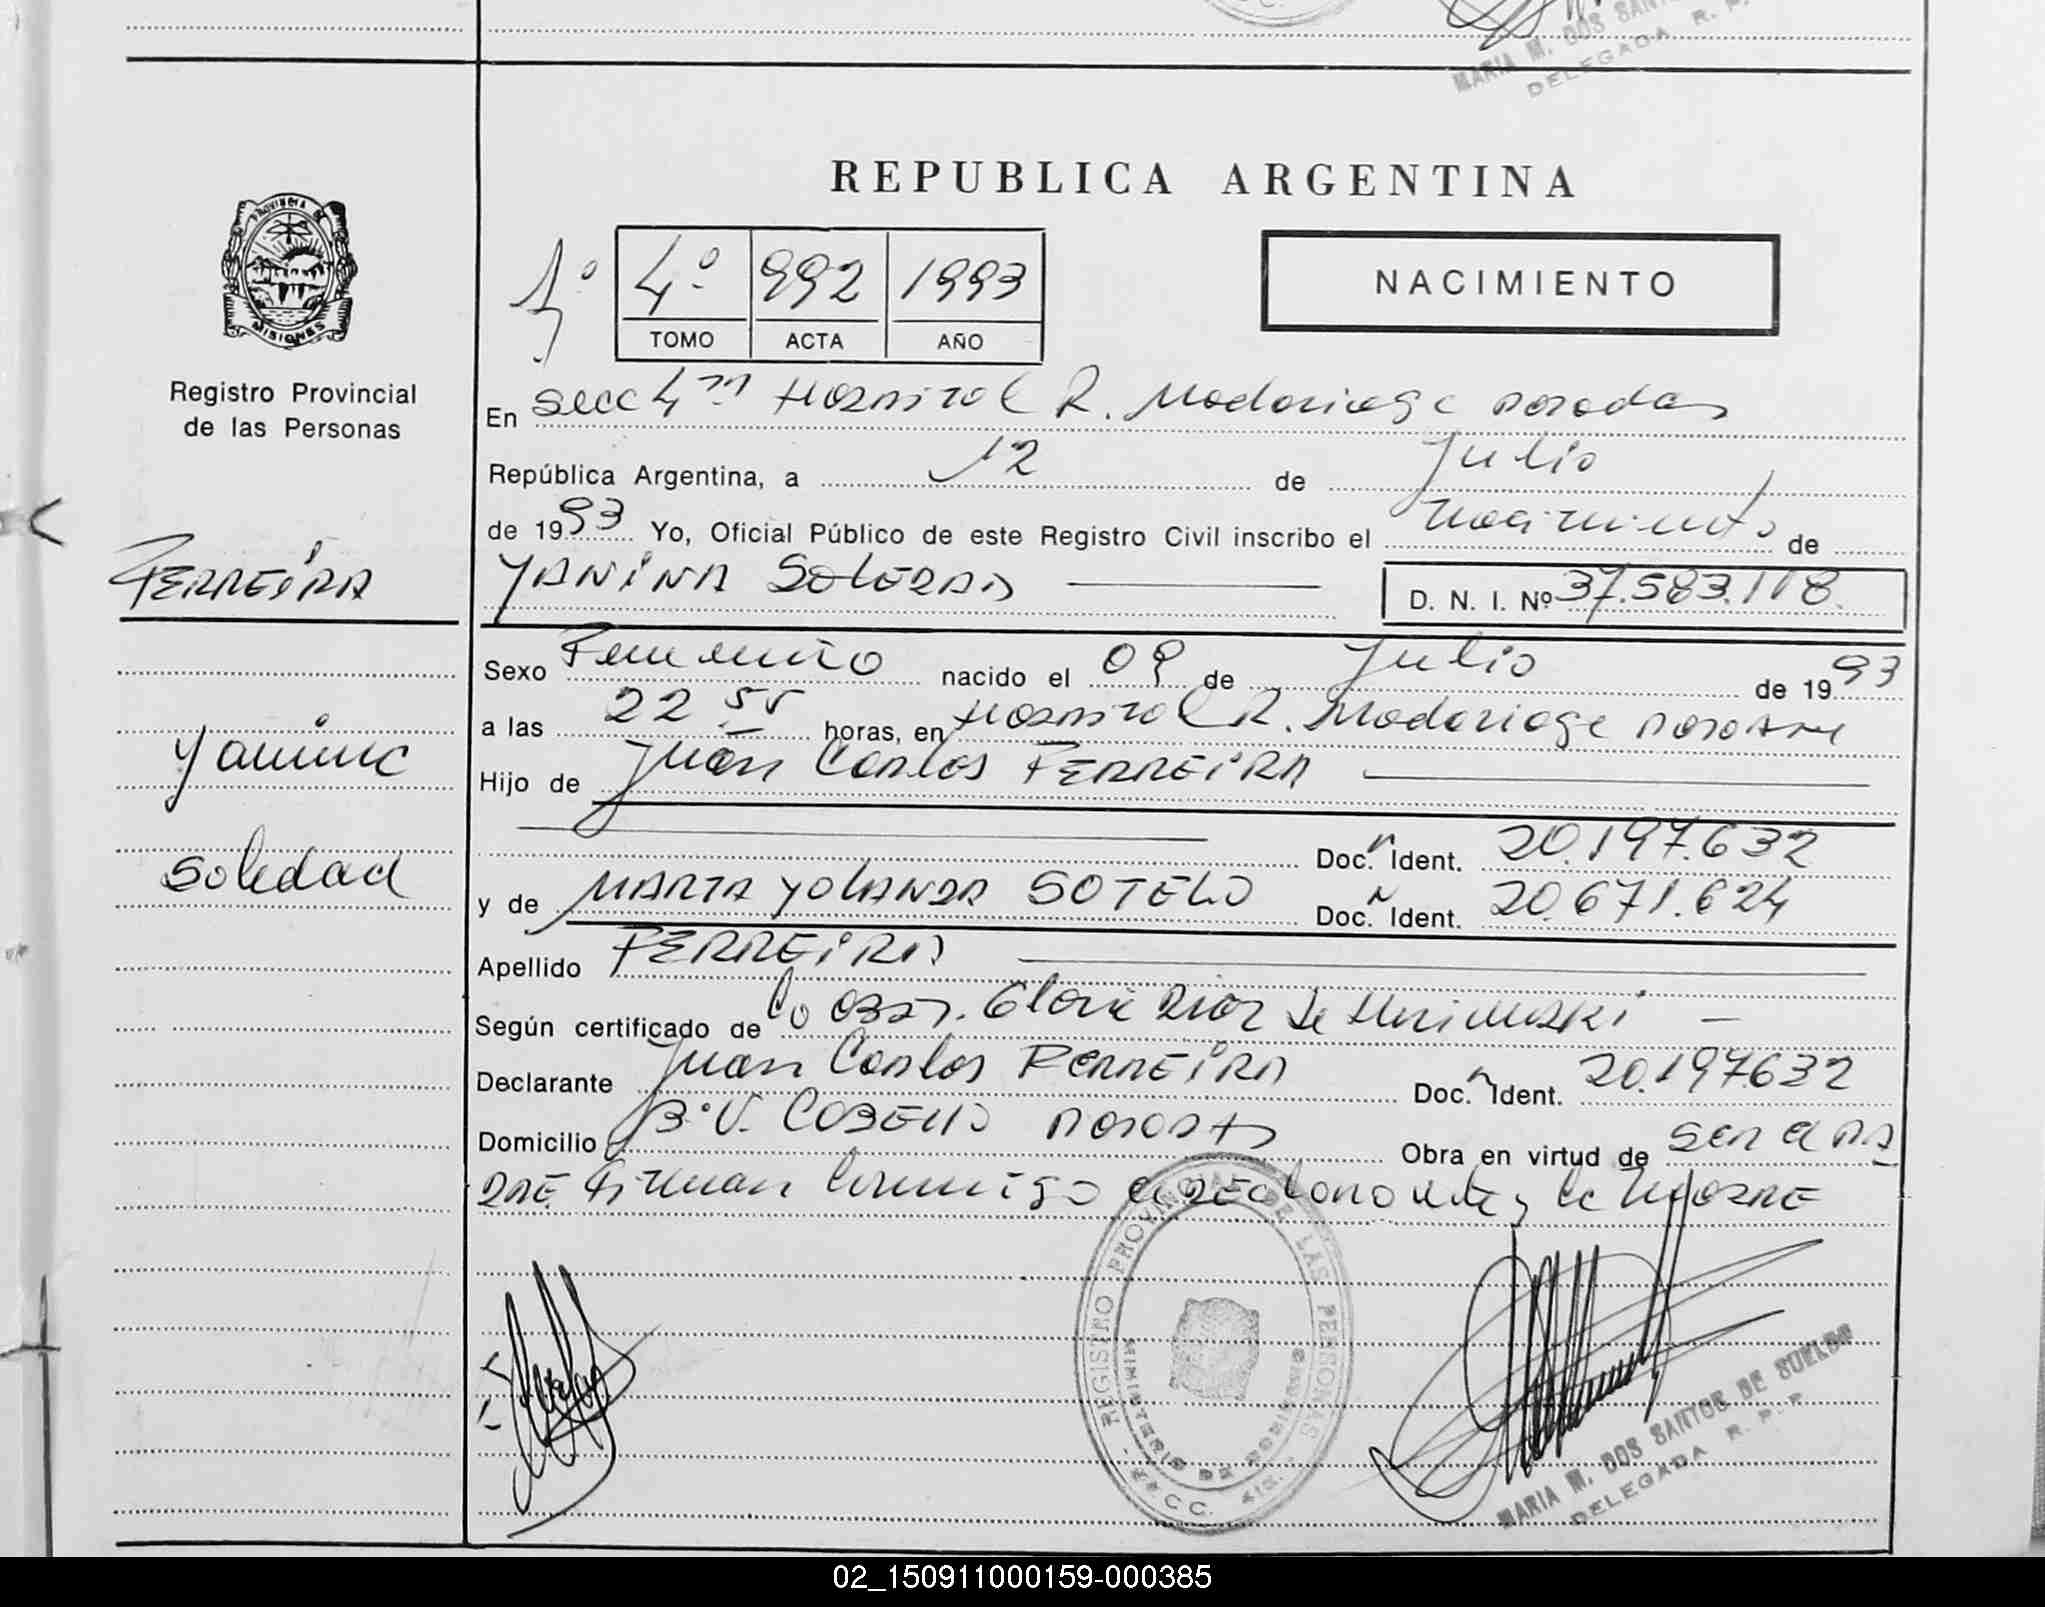 MARIA M. DOS SANTOS
DELEGADA R. P.
REPUBLICA ARGENTINA
PROVINCIA DE
MISIONES
Registro Provincial
de las Personas
1º
4º 992 1993
TOMO ACTA AÑO
NACIMIENTO
En secc 4ta Hospital R. Madariaga Posadas
República Argentina, a 12 de Julio
de 1993 Yo, Oficial Público de este Registro Civil inscribo el nacimiento de
YANINA SOLEDAD D. N. I. Nº 37.583.118
FERREIRA
Yanina
Soledad
Sexo Femenino nacido el 09 de Julio de 1993
a las 22 55 horas, en Hospital R. Madariaga Posadas
Hijo de Juan Carlos FERREIRA
Doc. Ident. 20.197.632
y de MARTA YOLANDA SOTELO Doc. Ident. 20.671.624
Apellido FERREIRA
Según certificado de la Obst. Gloria Diaz de
Declarante Juan Carlos FERREIRA Doc. Ident. 20.197.632
Domicilio Bº V. CABELLO POSADAS Obra en virtud de SER el PA
DRE Firman conmigo el DEClarante y la MADRE
REGISTRO PROVINCIAL DE LAS PERSONAS
MINISTERIO DE GOBIERNO
MARIA M. DOS SANTOS DE SUELDO
DELEGADA R. P. P.
02_150911000159-000385